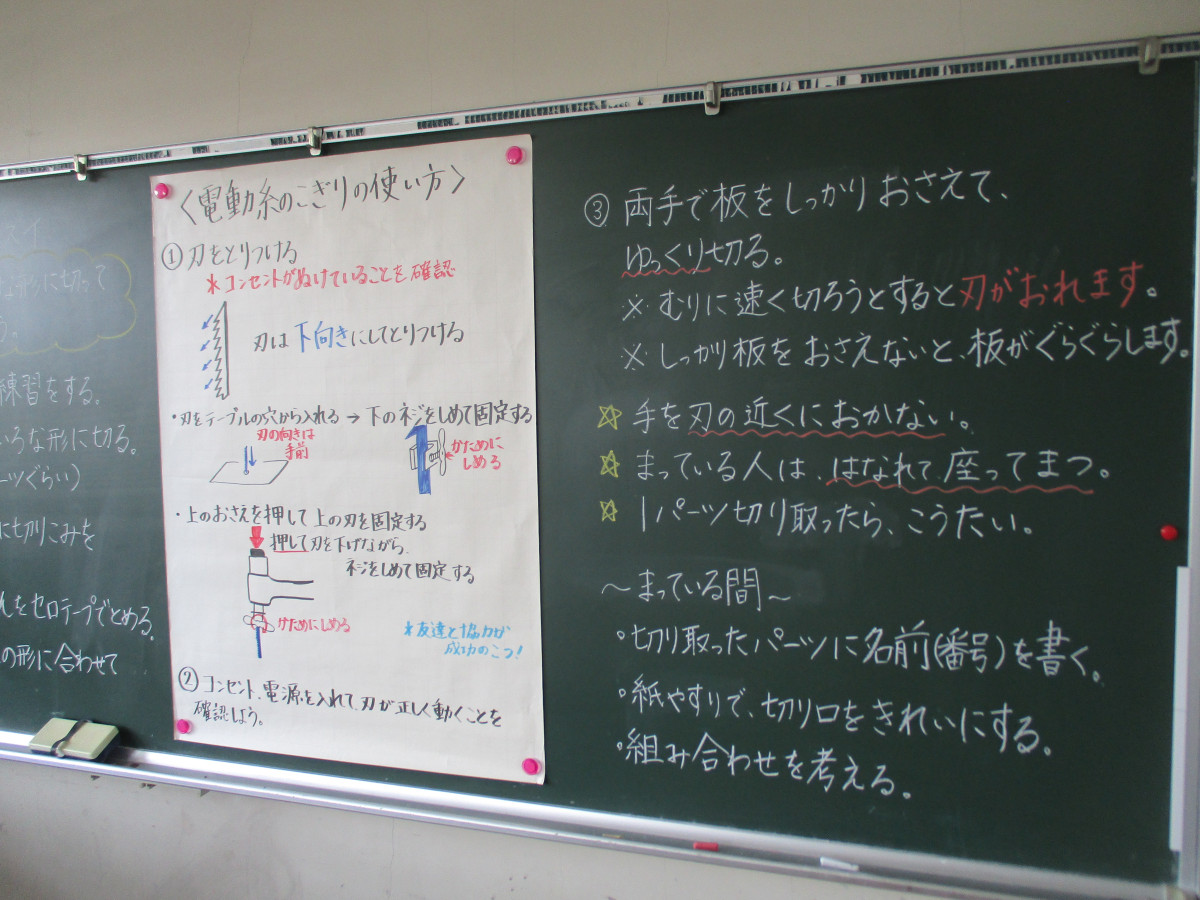 な形に切って
う。
練習をする。
いろな形に切る。
ーツぐらい)
に切りこみを
んをセロテープでとめる。
の形に合わせて
〈電動糸のこぎりの使い方〉
①刃をとりつける
＊コンセントがぬけていることを確認
刃は下向きにしてとりつける
・刃をテーブルの穴から入れる→下のネジをしめて固定する
刃の向きは
手前
かために
しめる
・上のおさえを押して上の刃を固定する
押して刃を下げながら、
ネジをしめて固定する
かためにしめる
＊友達と協力が
成功のこつ！
②コンセント、電源を入れて、刃が正しく動くことを
確認しよう。
③両手で板をしっかりおさえて、
ゆっくり切る。
※むりに速く切ろうとすると刃がおれます。
※しっかり板をおさえないと、板がぐらぐらします。
☆手を刃の近くにおかない。
☆まっている人は、はなれて、座ってまつ。
☆1パーツ切り取ったら、こうたい。
～まっている間～
・切り取ったパーツに名前(番号)を書く。
・紙やすりで、切り口をきれいにする。
・組み合わせを考える。